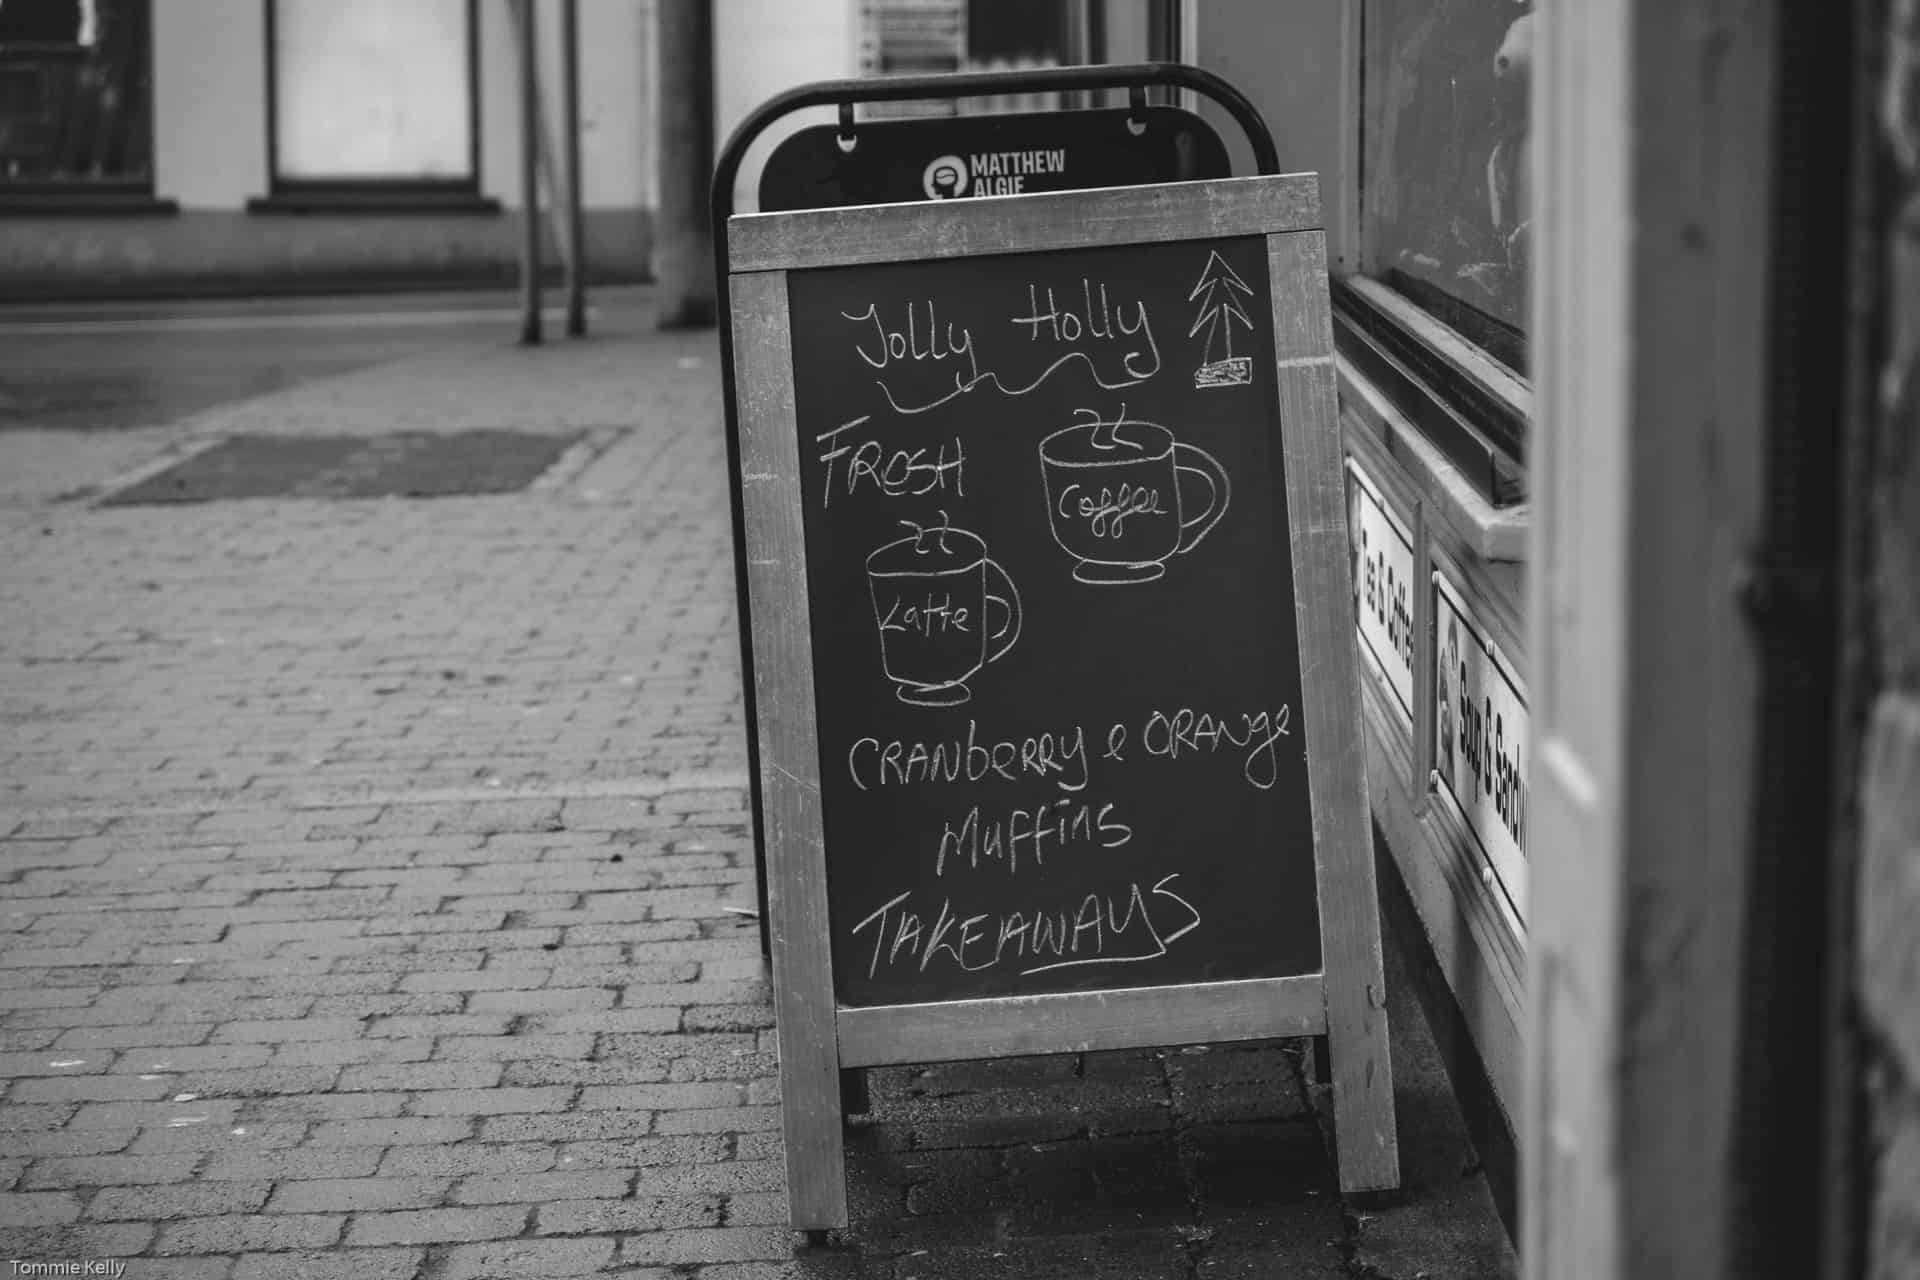 MATTHEW
ALGIE
Jolly Holly
FRESH
Coffee
Latte
CRANbeRRy e ORANge
Muffins
TAKEAWAYS
Tea & Coffee
Soup & Sandw
Tommie Kelly